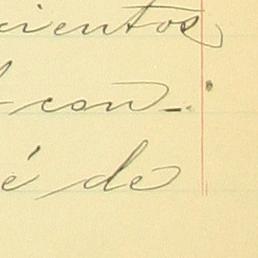 cientos
con-
é de